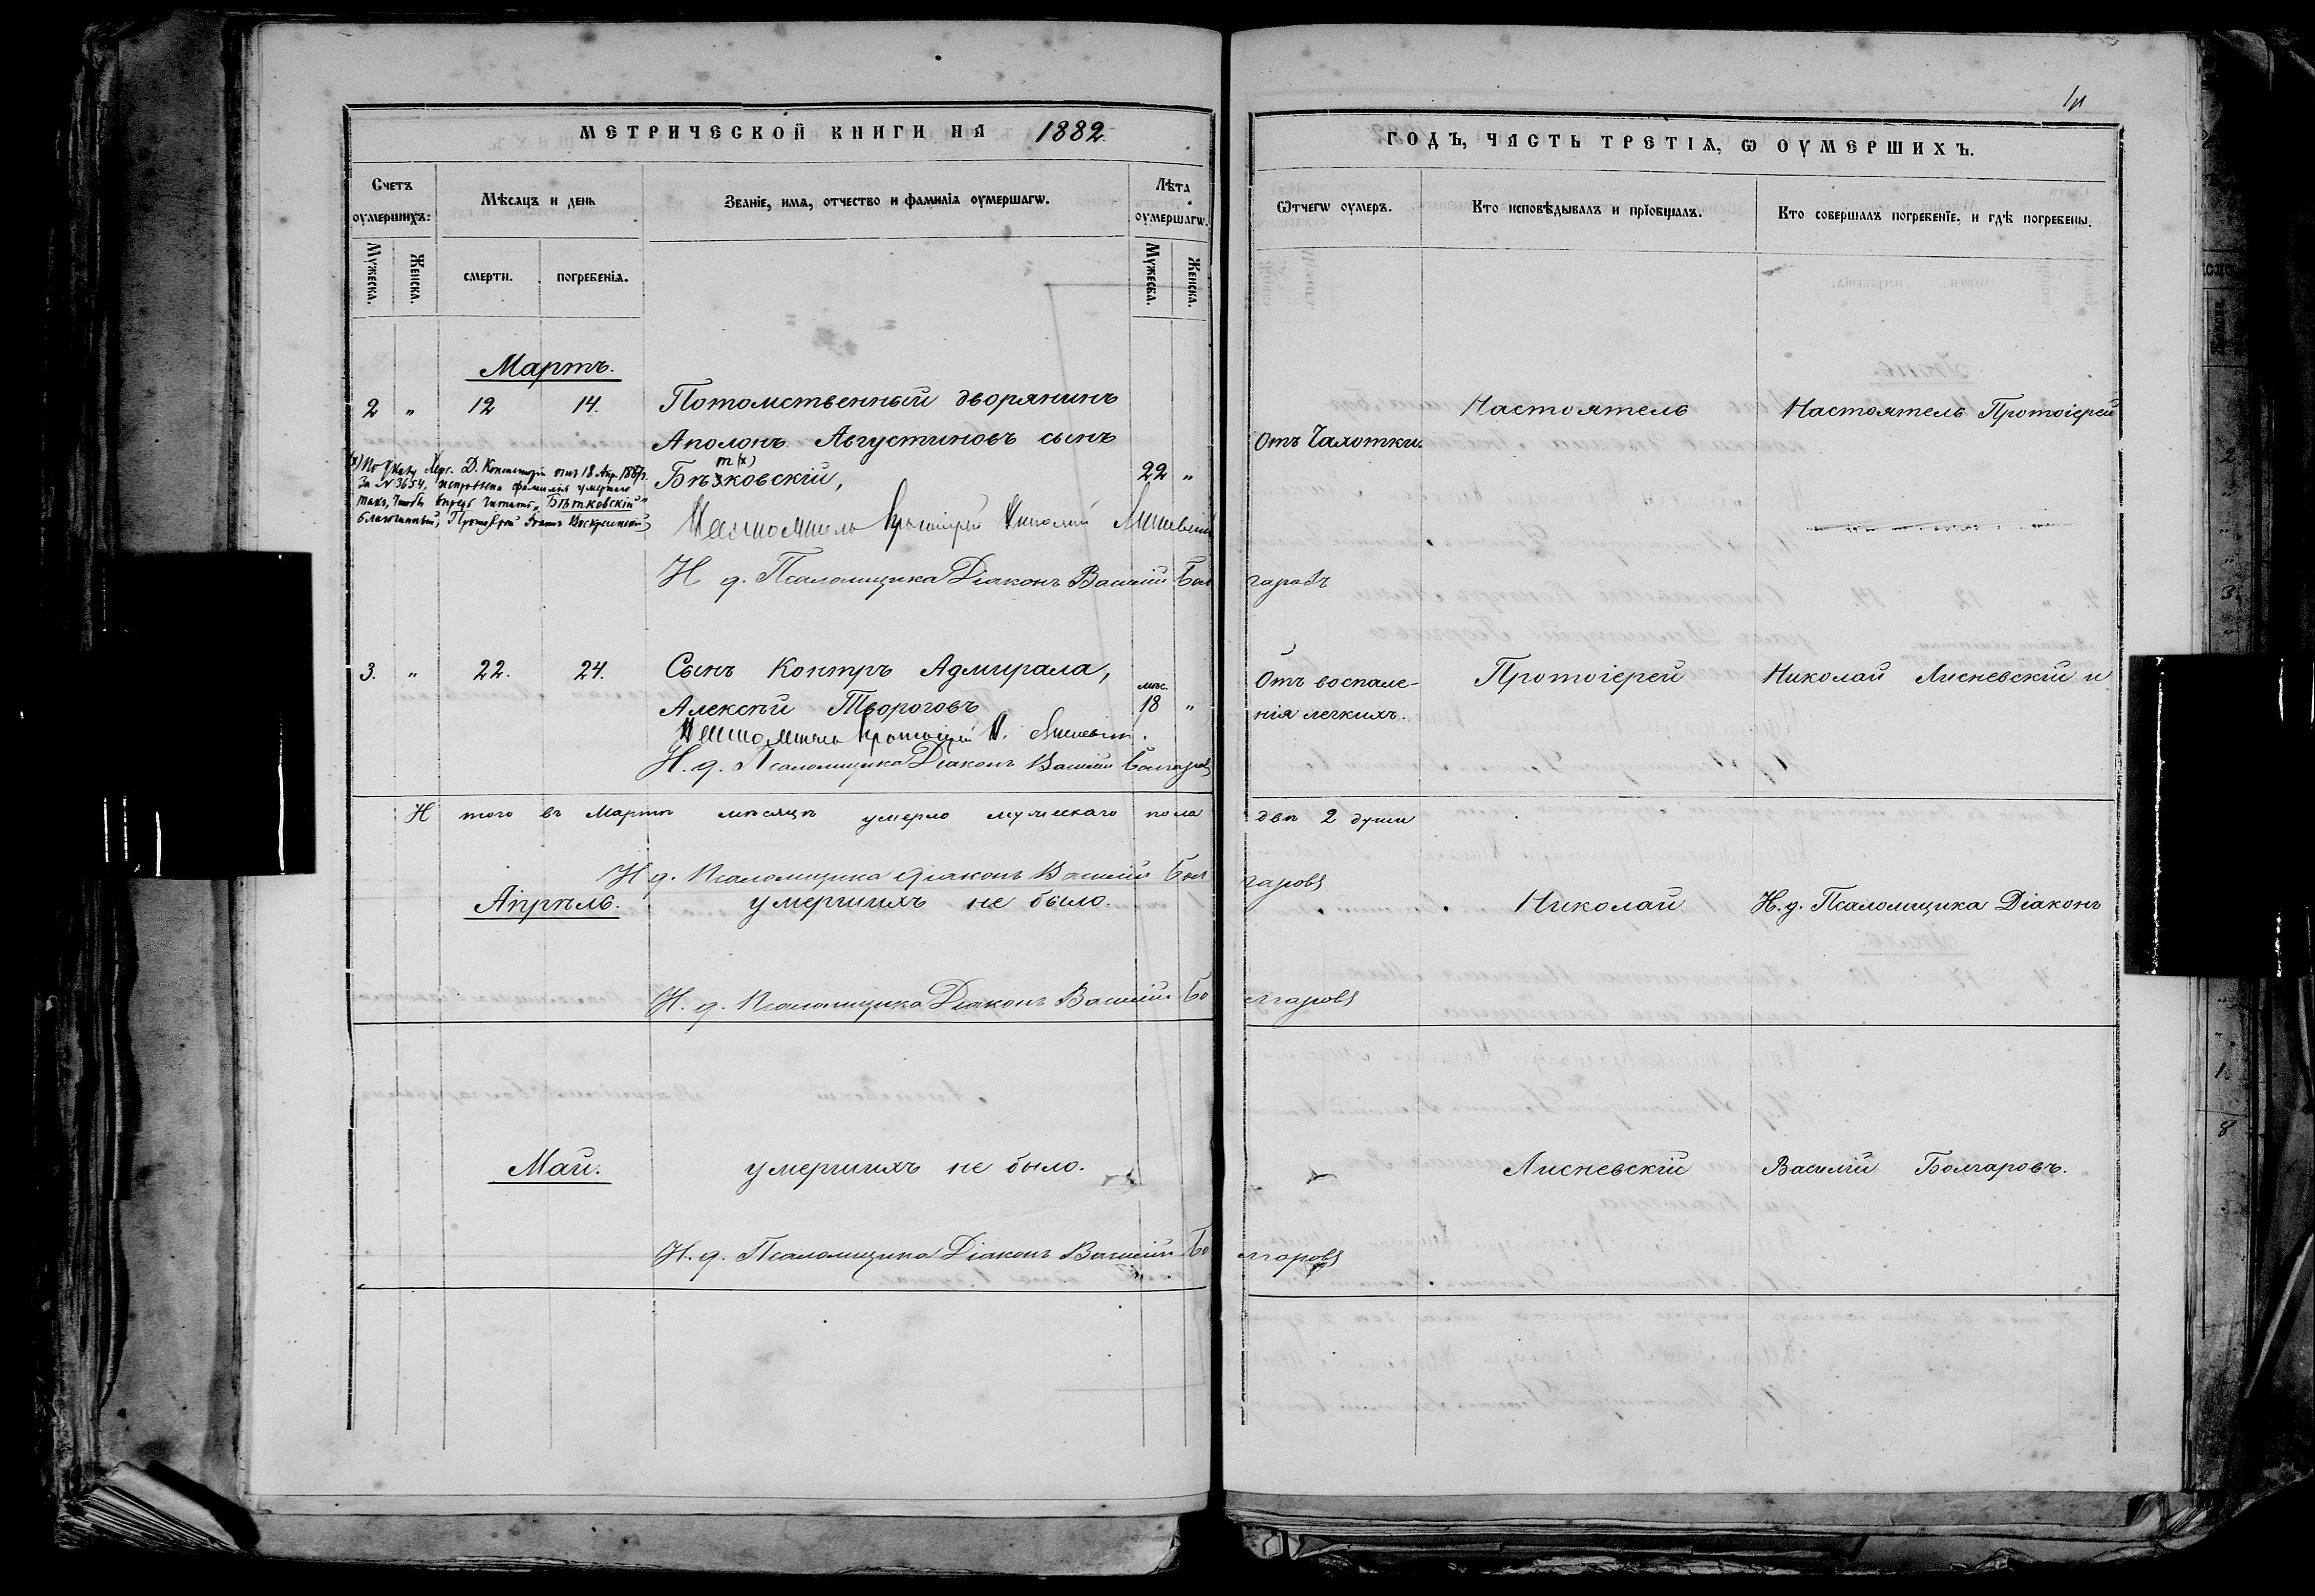 МЕТРИЧЕСКОЙ КНИГИ НА 1882
Счетъ оумершихъ:
Мѣсяцъ и день
Званіе, имя, отчество и фамилія оумершагѡ.
Лѣта оумершагѡ.
Мужеска.
Женска.
смерти.
погребенія.
Мужеска.
Женска.
Мартъ.
2 " 12 14. Потомственный дворянинъ
Аполонъ Августиновъ сынъ
т (х)
Бѣзковскій, 22 "
(х) По Указу Хер. Д. Консисторіи отъ 18 Апр. 1887 г.
За № 3654, исправлена фамилія умершаго
такъ, чтобы впредь читать, "Бѣтковскій"
Благочинный, Протоіерей Воскресенскій
Настоятель Протоіерей Николай Лисневскій
И. д. Псаломщика Діаконъ Василій Бол
3. " 22. 24. Сынъ Контръ Адмирала,
мѣс.
Алексѣй Твороговъ 18 "
Настоятель Протоіерей Н. Лисневскій.
И. д. Псаломщика Діаконъ Василій Болгаровъ
И того въ Мартѣ мѣсяцѣ умерло мужескаго пола
И. д. Псаломщика Діаконъ Василій Бол
Апрѣль. умершихъ не было.
И. д. Псаломщика Діаконъ Василій Бо
Май. умершихъ не было.
И. д. Псаломщика Діаконъ Василій Бо
ГОДЪ, ЧАСТЬ ТРЕТІЯ, Ѡ ОУМЕРШИХЪ.
Ѿтчегѡ оумеръ.
Кто исповѣдывалъ и пріобщалъ.
Кто совершалъ погребеніе, и гдѣ погребены.
Настоятель Настоятель Протоіерей
Отъ Чахотки.
гаровъ
Отъ воспале- Протоіерей Николай Лисневскій и
нія легкихъ.
двѣ 2 души
гаровъ
Николай И. д. Псаломщика Діаконъ
лгаровъ
Лисневскій Василій Болгаровъ.
лгаровъ